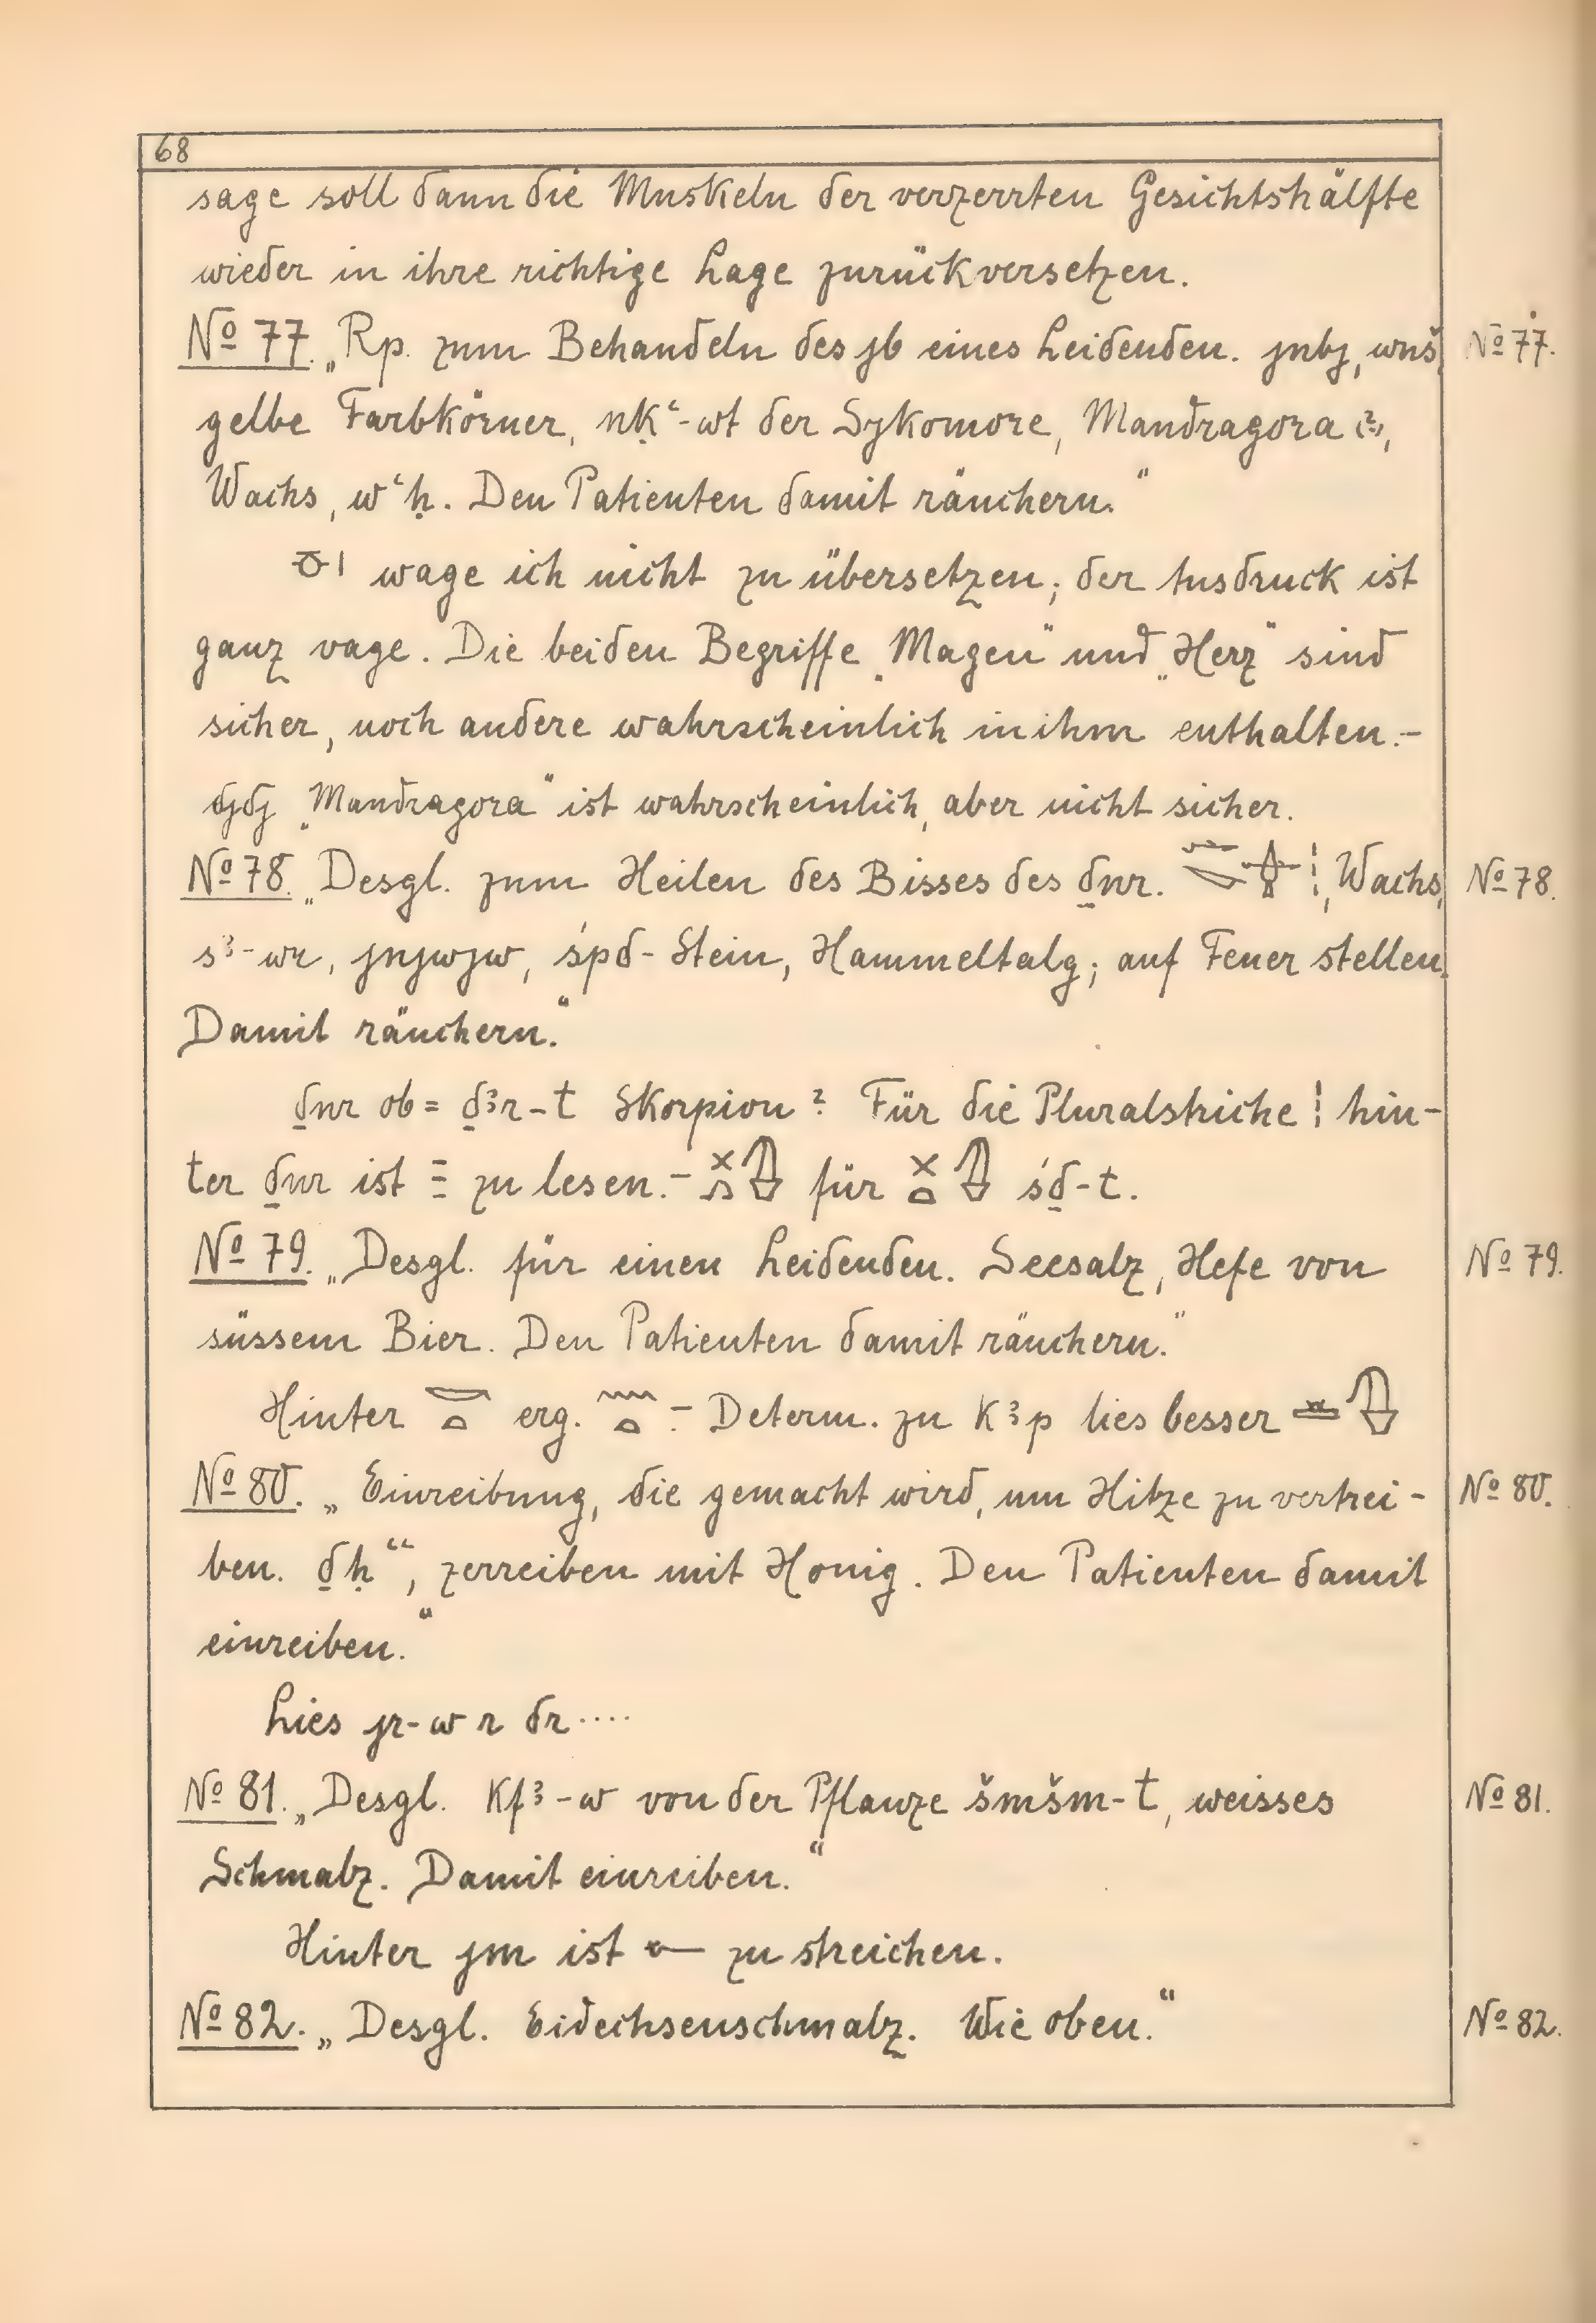 68
sage soll dann die Muskeln der verzerrten Gesichtshälfte
wieder in ihre richtige Lage zurückversetzen.
No 77. „Rp. zum Behandeln des jb eines Leidenden. jnbj, wnš, No 77.
gelbe Farbkörner, nḳꜥ-wt der Sykomore, Mandragora (?),
Wachs, wꜥḥ. Den Patienten damit räuchern."
wage ich nicht zu übersetzen; der Ausdruck ist
ganz vage. Die beiden Begriffe „Magen" und „Herz" sind
sicher, noch andere wahrscheinlich in ihm enthalten.-
djdj „Mandragora" ist wahrscheinlich, aber nicht sicher.
No 78. „Desgl. zum Heilen des Bisses des ḏnr. , Wachs, No 78.
sꜣ-wr, jnjwjw, śpd-Stein, Hammeltalg; auf Feuer stellen.
Damit räuchern."
ḏnr ob = ḏꜣr-t Skorpion? Für die Pluralstriche ¦ hin-
ter ḏnr ist Ξ zu lesen.- für śḏ-t.
No 79. „Desgl. für einen Leidenden. Seesalz, Hefe von No 79.
süssem Bier. Den Patienten damit räuchern."
Hinter erg. - Determ. zu kꜣp lies besser
No 80. „Einreibung, die gemacht wird, um Hitze zu vertrei- No 80.
ben. ḏḥꜥꜥ, zerreiben mit Honig. Den Patienten damit
einreiben."
Lies jr-w r dr....
No 81. „Desgl. kfꜣ-w von der Pflanze šmšm-t, weisses No 81.
Schmalz. Damit einreiben."
Hinter jm ist zu streichen.
No 82. „Desgl. Eidechsenschmalz. Wie oben." No 82.